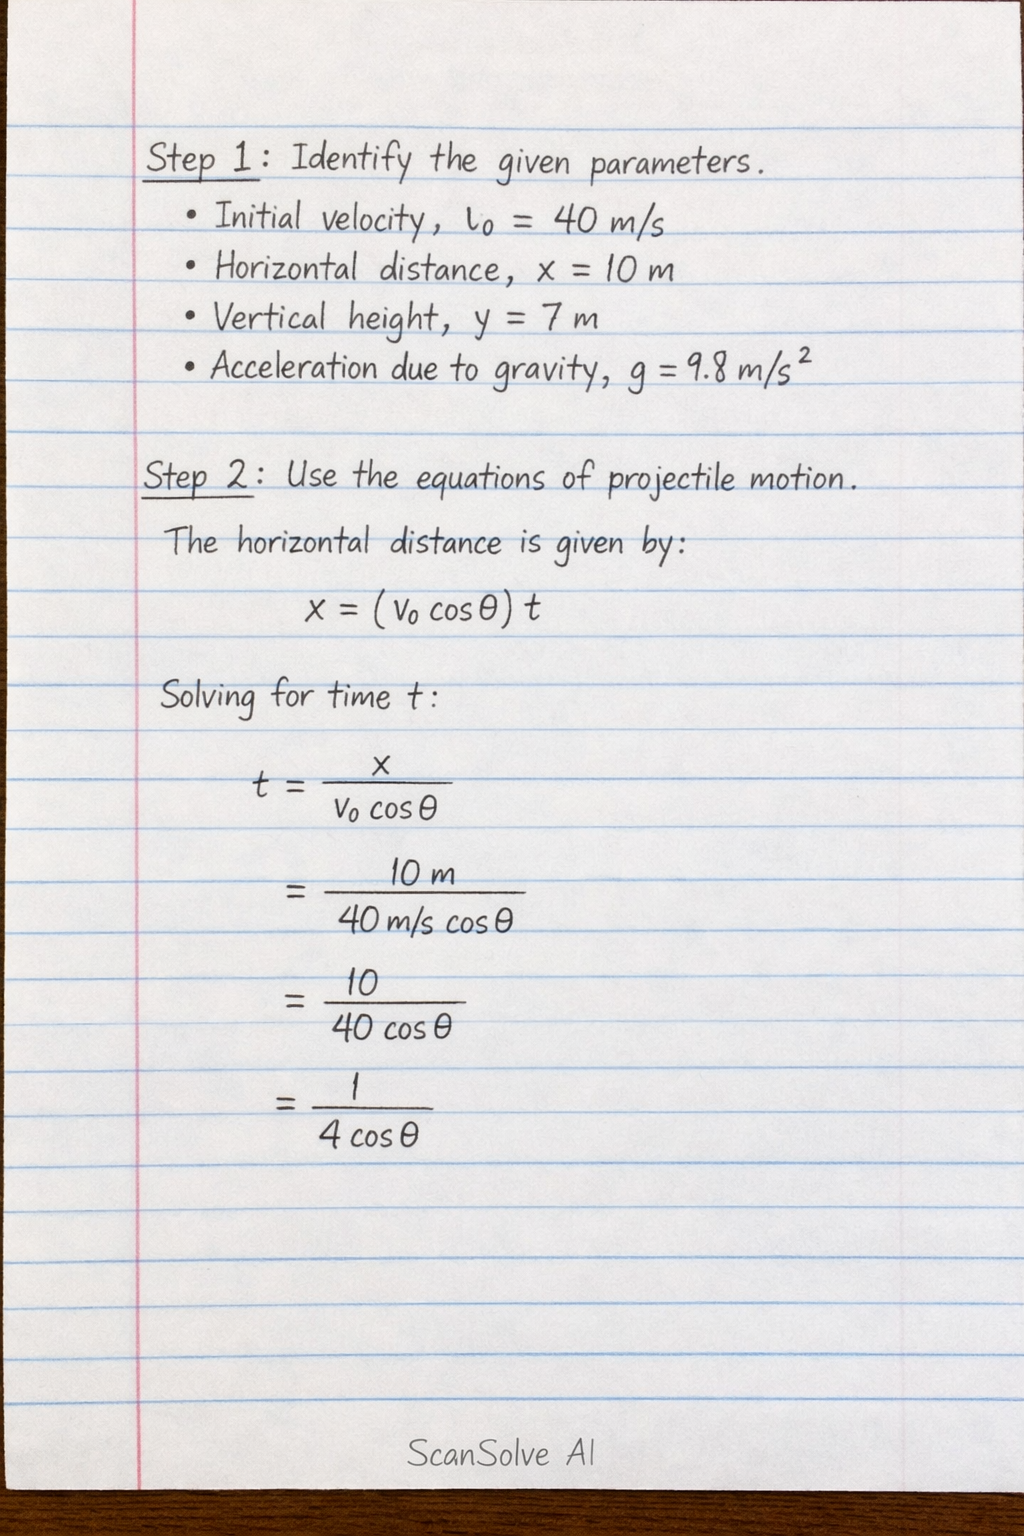 Step 1: Identify the given parameters.
• Initial velocity, ι₀ = 40 m/s
• Horizontal distance, x = 10 m
• Vertical height, y = 7 m
• Acceleration due to gravity, g = 9.8 m/s²
Step 2: Use the equations of projectile motion.
The horizontal distance is given by:
x = (v₀ cos θ) t
Solving for time t:
t = x / v₀ cos θ
= 10 m / 40 m/s cos θ
= 10 / 40 cos θ
= 1 / 4 cos θ
ScanSolve AI